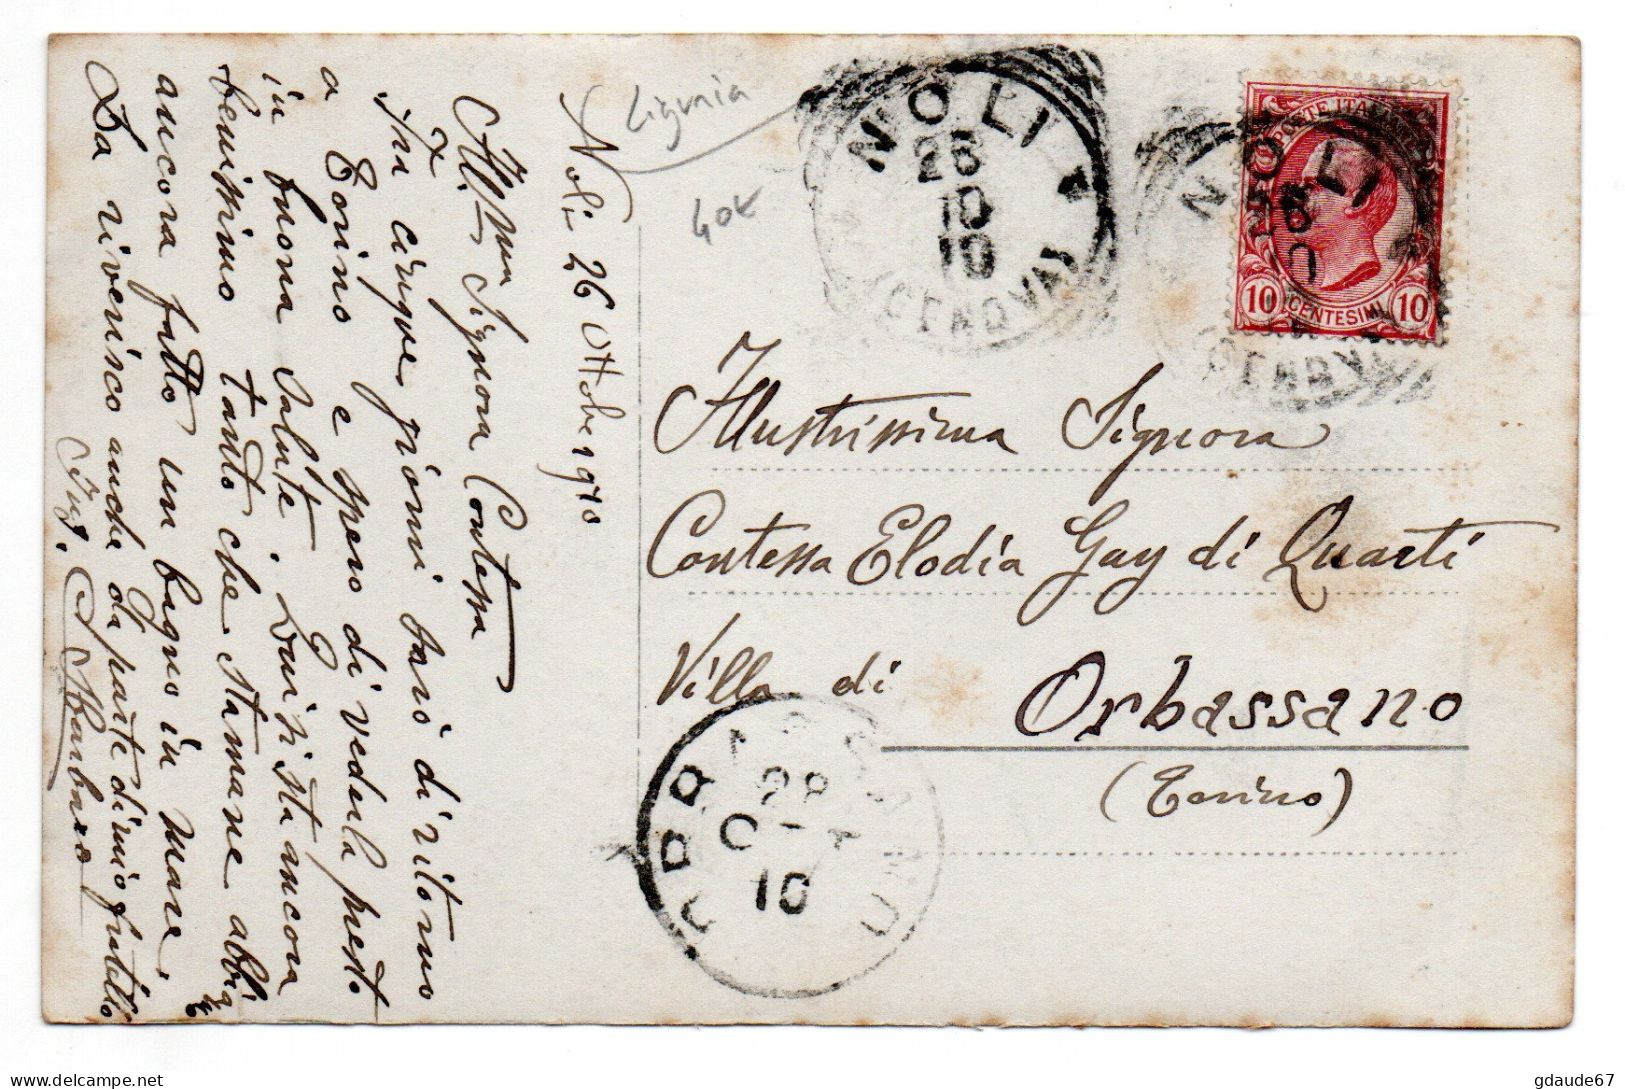 Noli 26 Ottobre 1910
Ill.ma Signora Contessa
Fra cinque giorni sarò di ritorno
a Torino e spero di vederla presto
in buona salute. Qui si sta ancora
benissimo tanto che stamane abbia
ancora fatto un bagno in mare.
La riverisco anche da parte di mio fratello
Ing. Barbaro
Liguria
40€
NOLI
26
10
10
(GENOVA)
NOLI
POSTE ITALIANE
10 CENTESIMI 10
Illustrissima Signora
Contessa Elodia Gay di Quarti
Villa di Orbassano
(Torino)
ORBASSANO
28
OTT
10
delcampe.net
gdaude67